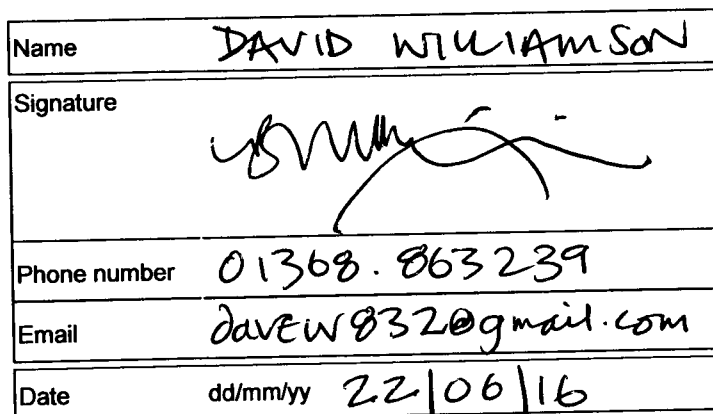 Name DAVID WILLIAMSON
Signature
Phone number 01368.863239
Email davew832@gmail.com
Date dd/mm/yy 22|06|16